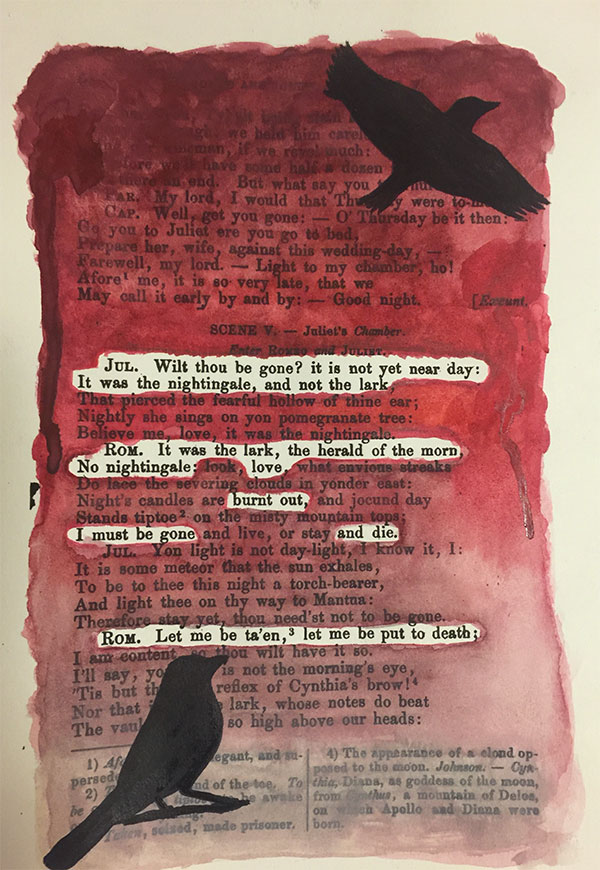 we held him
if we revel much:
have some half a dozen
there an end. But what say you
PAR. My lord, I would that were
CAP. Well, get you gone: — O' Thursday be it then:
Go you to Juliet ere you go to bed,
Prepare her, wife, against this wedding-day, —
Farewell, my lord. — Light to my chamber, ho!
Afore¹ me, it is so very late, that we
May call it early by and by: — Good night. [Exeunt.
SCENE V. — Juliet's Chamber.
Enter ROMEO and JULIET.
JUL. Wilt thou be gone? it is not yet near day:
It was the nightingale, and not the lark,
That pierced the fearful hollow of thine ear;
Nightly she sings on yon pomegranate tree:
Believe me, love, it was the nightingale.
ROM. It was the lark, the herald of the morn,
No nightingale: look, love, what envious streaks
Do lace the severing clouds in yonder east:
Night's candles are burnt out, and jocund day
Stands tiptoe² on the misty mountain tops;
I must be gone and live, or stay and die.
JUL. Yon light is not day-light, I know it, I:
It is some meteor that the sun exhales,
To be to thee this night a torch-bearer,
And light thee on thy way to Mantua:
Therefore stay yet, thou need'st not to be gone.
ROM. Let me be ta'en,³ let me be put to death;
I am content, so thou wilt have it so.
I'll say, is not the morning's eye,
'Tis but reflex of Cynthia's brow!⁴
Nor that lark, whose notes do beat
The so high above our heads:
1) and su-
2) of the toe. To
be awake
Taken, seized, made prisoner.
4) The appearance of a cloud op-
posed to the moon. Johnson. — Cyn-
thia, Diana, as goddess of the moon,
from Cynthus, a mountain of Delos,
on which Apollo and Diana were
born.